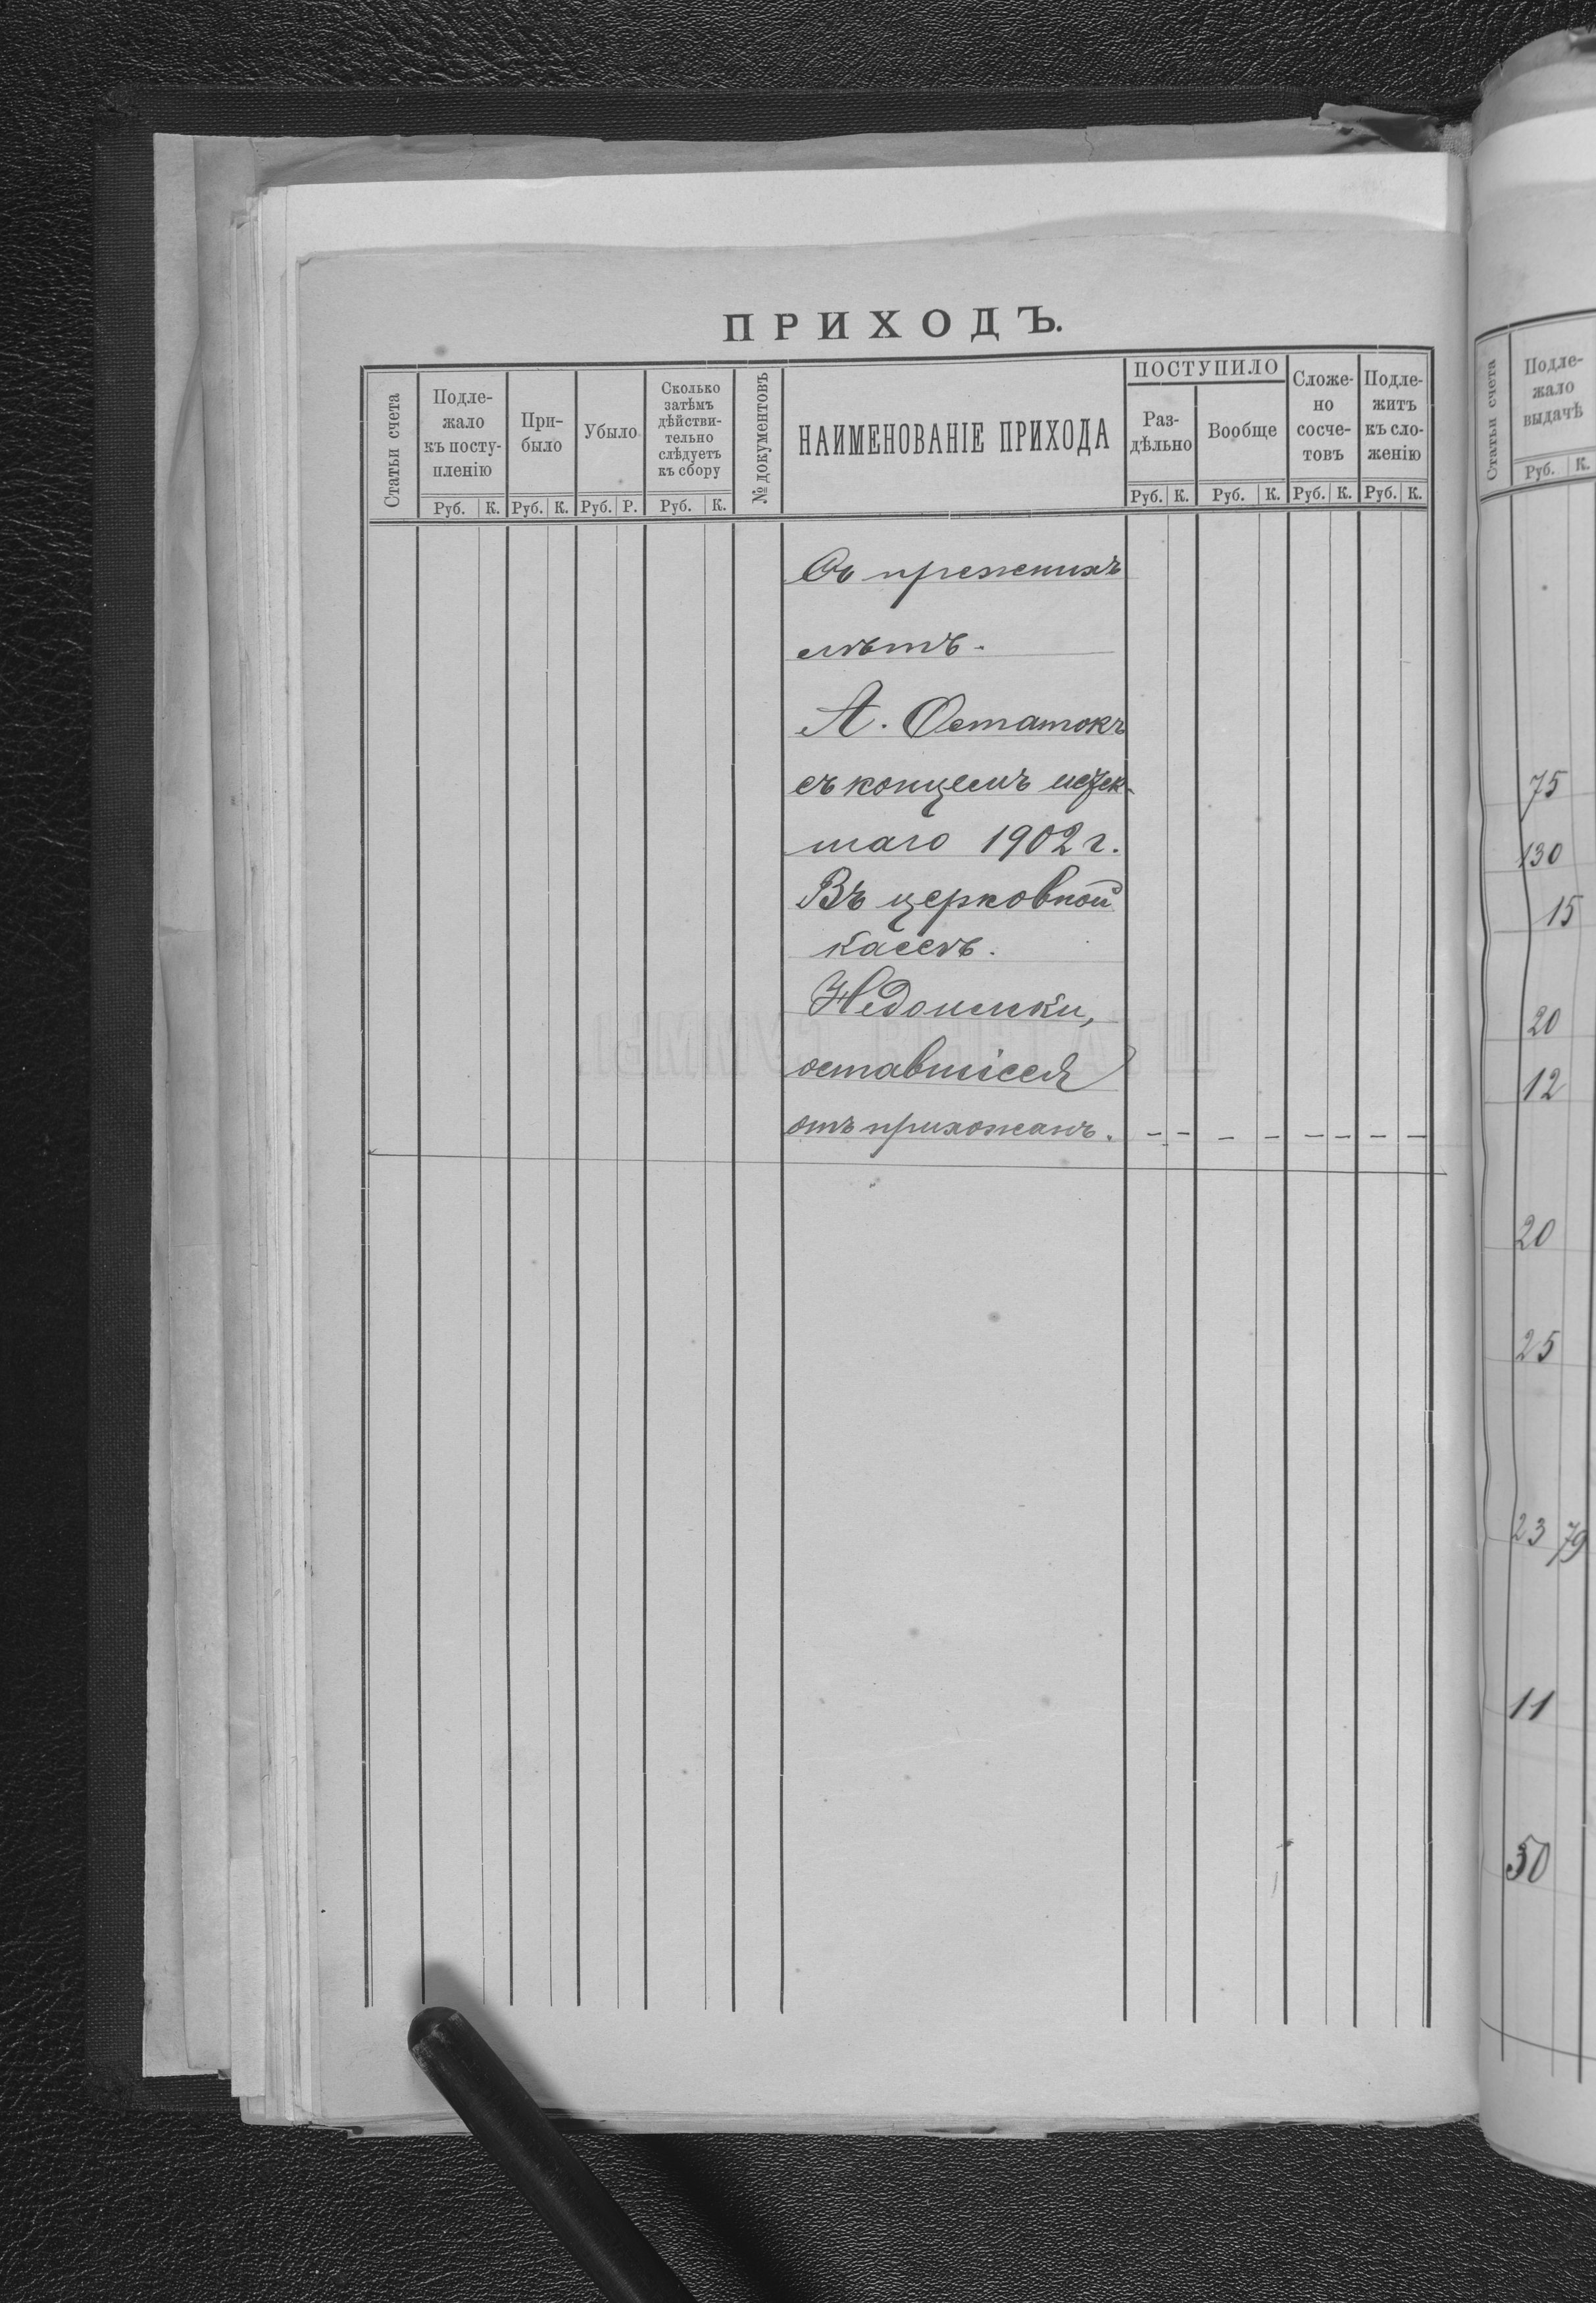 ПРИХОДЪ.
Статьи счета
Подле-
жало
къ посту-
пленію
При-
было
Убыло
Сколько
затѣмъ
дѣйстви-
тельно
слѣдуетъ
къ сбору
№ документовъ
НАИМЕНОВАНІЕ ПРИХОДА
ПОСТУПИЛО
Раз-
дѣльно
Вообще
Сложе-
но
сосче-
товъ
Подле-
житъ
къ сло-
женію
Руб. К. Руб. К. Руб. Р. Руб. К. Руб. К. Руб. К. Руб. К. Руб. К.
Съ прежнихъ
лѣтъ.
А. Остатокъ
съ концемъ истек-
шаго 1902 г.
Въ церковной
кассѣ.
Недоимки,
оставшіеся
отъ прихожанъ. – – – – – – – –
Статьи счета
Подле-
жало
выдачѣ
Руб. К.
75
130
15
20
12
20
25
23 79
11
50